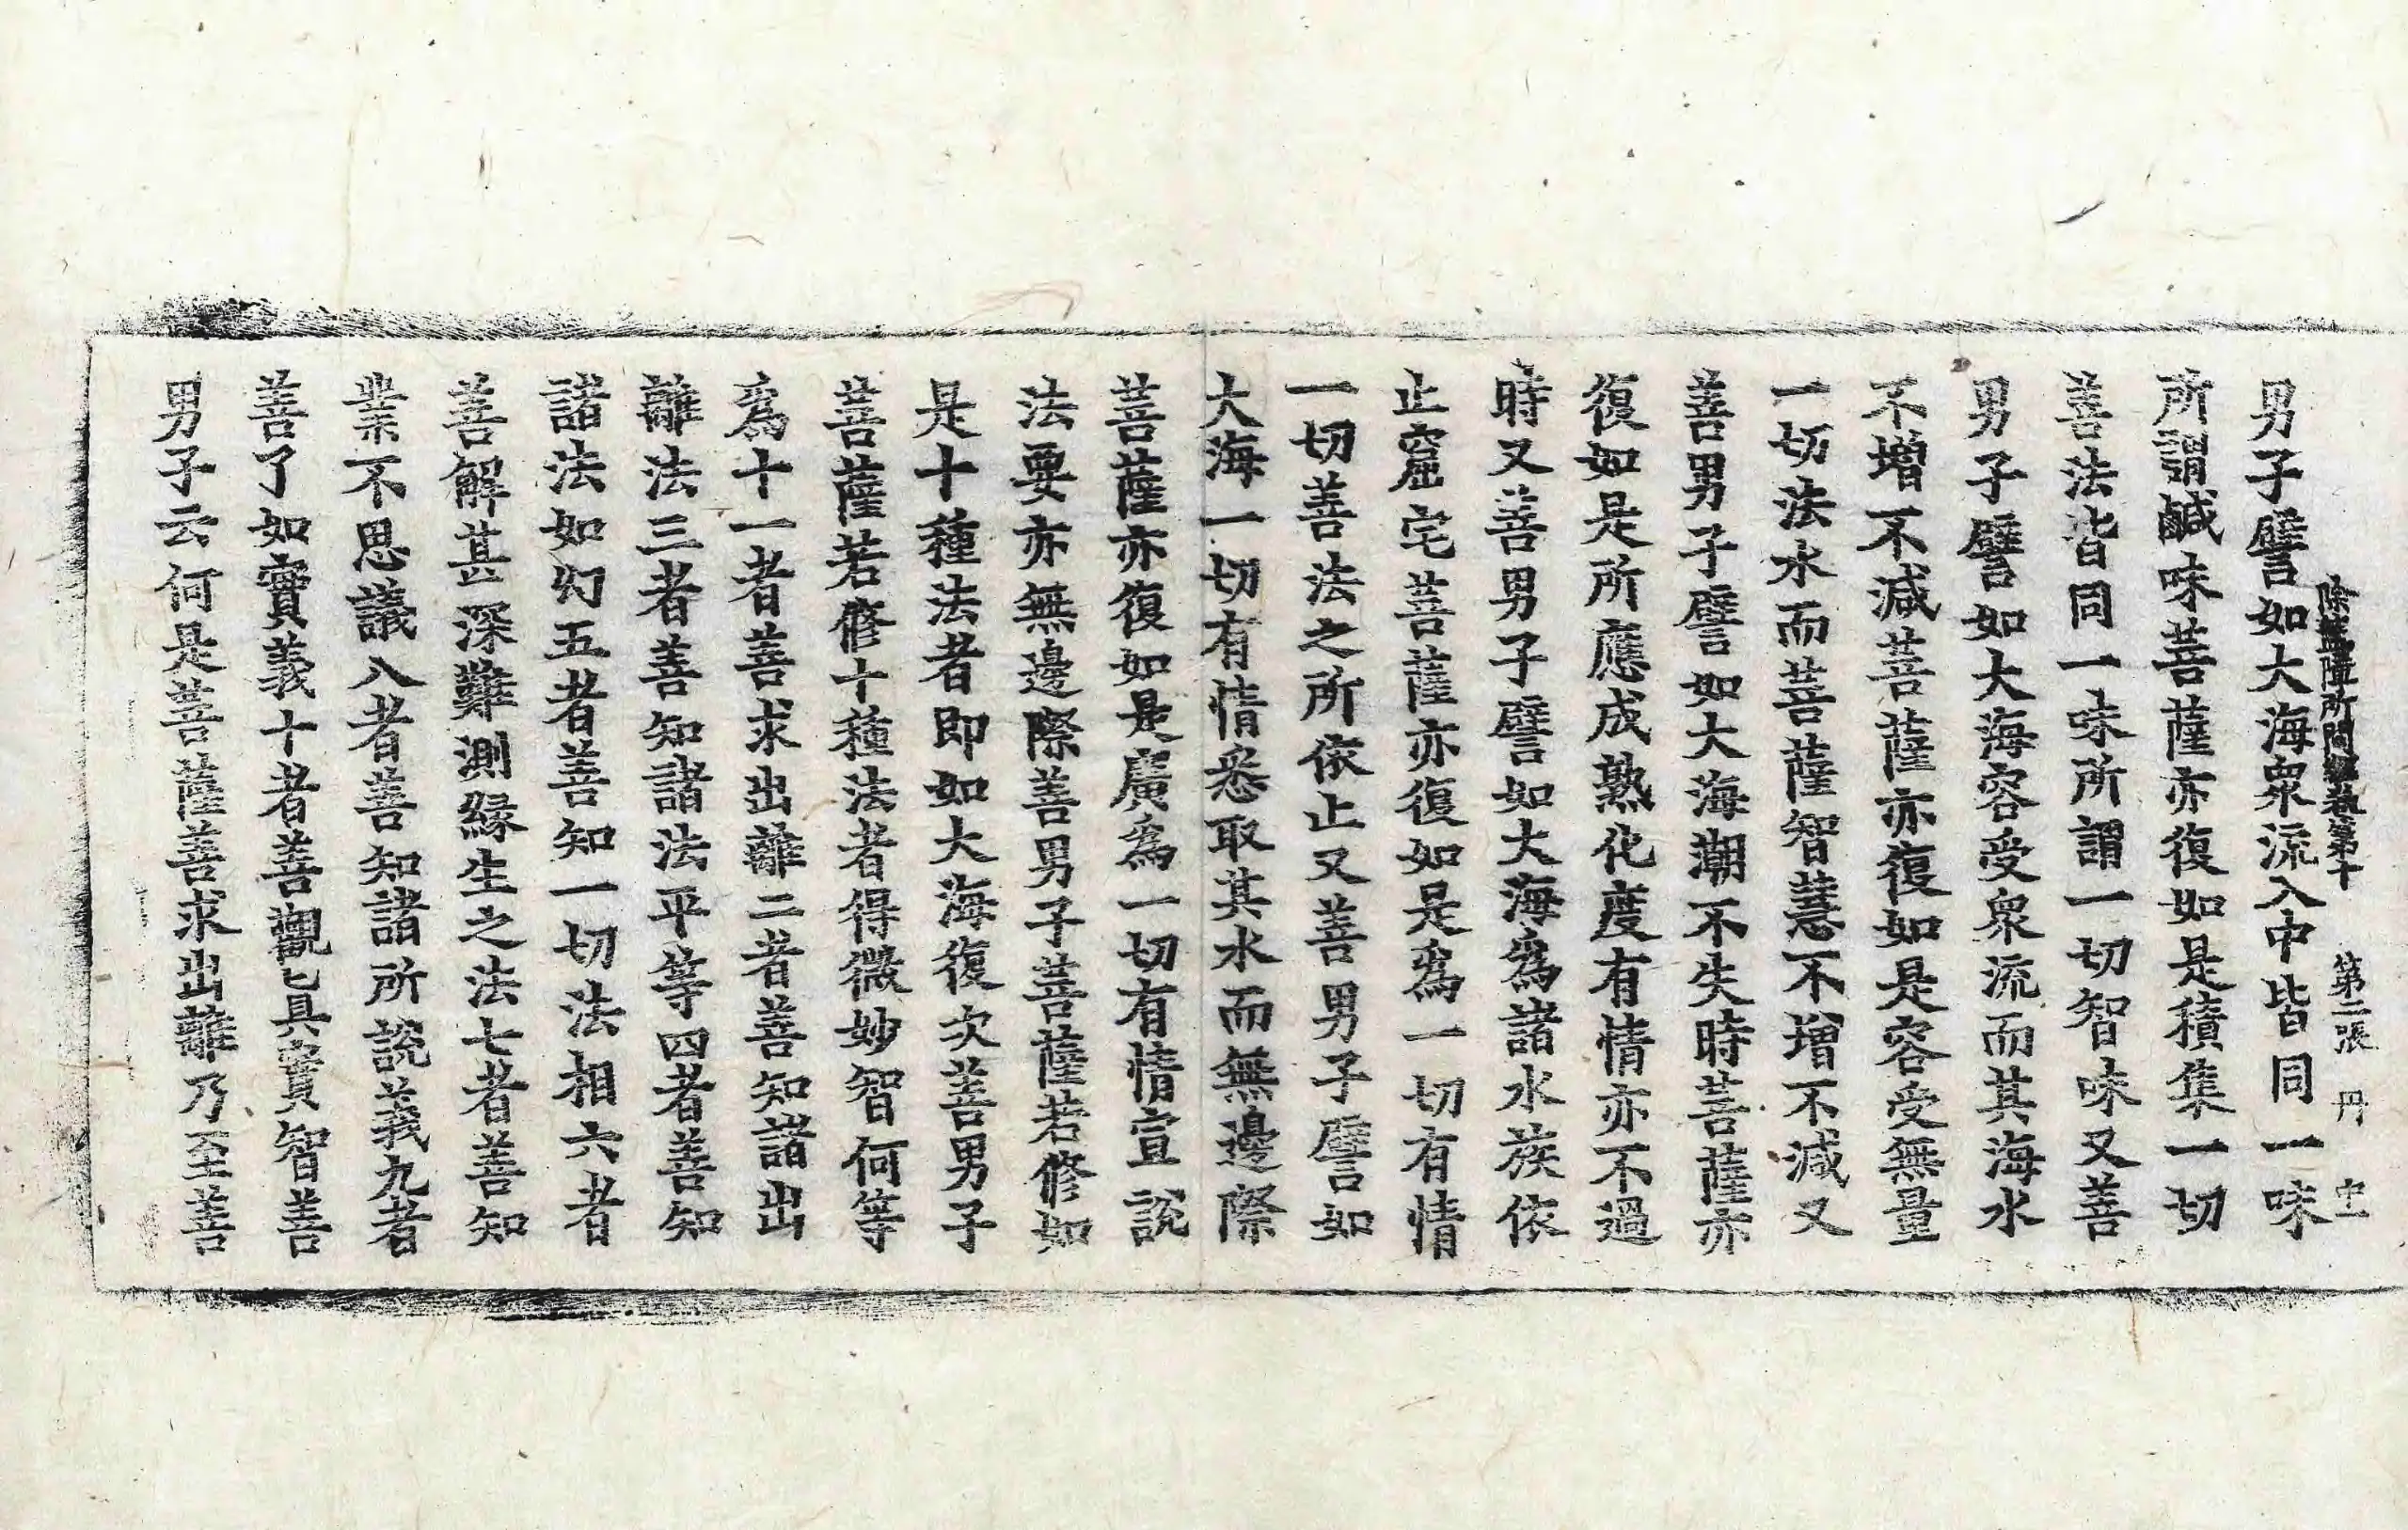 除蓋障所問經卷第十 第二張 丹
男子譬如大海衆流入中皆同一味
所謂鹹味菩薩亦復如是積集一切
善法皆同一味所謂一切智味又善
男子譬如大海容受衆流而其海水
不增不減菩薩亦復如是容受無量
一切法水而菩薩智慧不增不減又
善男子譬如大海潮不失時菩薩亦
復如是所應成熟化度有情亦不過
時又善男子譬如大海爲諸水族依
止窟宅菩薩亦復如是爲一切有情
一切善法之所依止又善男子譬如
大海一切有情悉取其水而無邊際
菩薩亦復如是廣爲一切有情宣說
法要亦無邊際善男子菩薩若修如
是十種法者即如大海復次善男子
菩薩若修十種法者得微妙智何等
爲十一者善求出離二者善知諸出
離法三者善知諸法平等四者善知
諸法如幻五者善知一切法相六者
善解甚深難測緣生之法七者善知
業不思議八者善知諸所說義九者
善了如實義十者善觀已具實智善
男子云何是菩薩善求出離乃至善